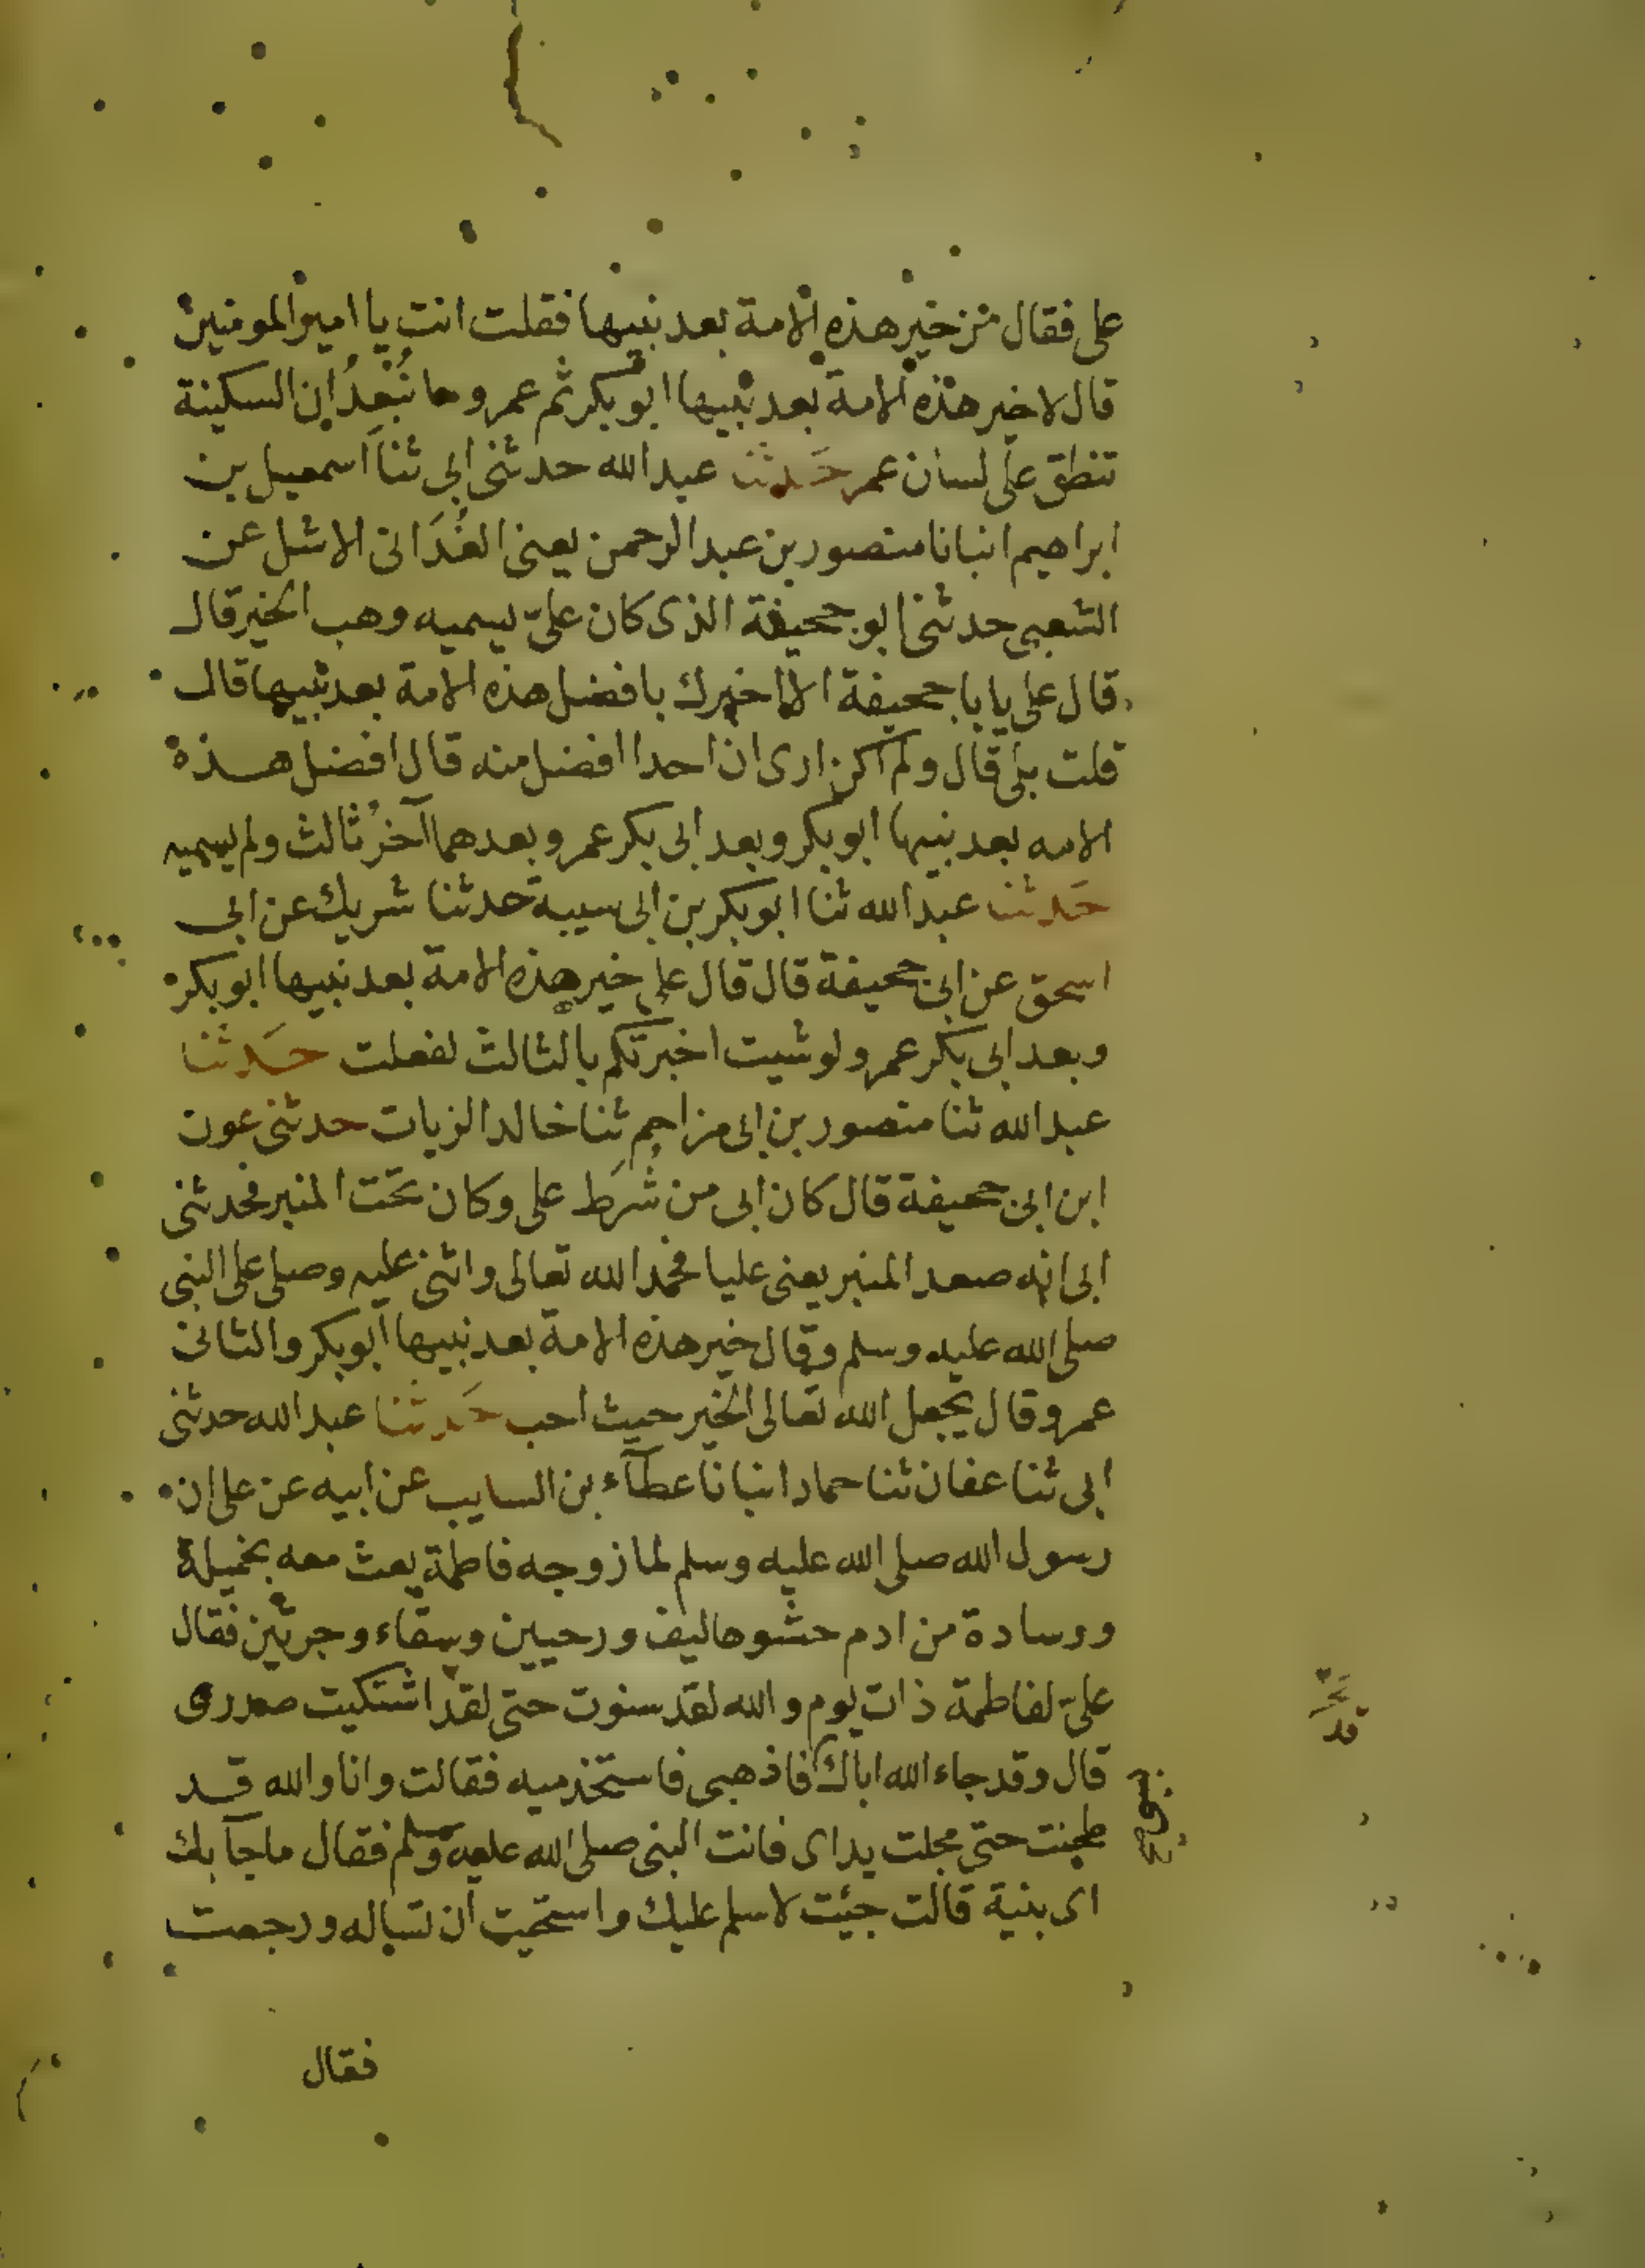 على فقال من خير هذه الامة بعد نبيها فقلت انت يا امير المومنين
قال لا خير هذه الامة بعد نبيها ابو بكر ثم عمر وما نُبْعِدُ ان السكينة
تنطق على لسان عمر حَدثنا عبد الله حدثنى ابى ثنا اسمعيل بن
ابراهيم انبانا منصور بن عبد الرحمن يعنى الغُدَانى الاشل عن
الشعبى حدثنى ابو جحيفة الذى كان علىّ يسميه وهب الخير قال
قال على يا با جحيفة الا اخبرك بافضل هذه الامة بعد نبيها قال
قلت بلى قال ولم اكن ارى ان احدا افضل منه قال افضل هذه
الامه بعد نبيها ابو بكر وبعد ابى بكر عمر وبعدهما آخرُ ثالث ولم يسميه
حَدثنا عبد الله ثنا ابو بكر بن ابى سيبة حدثنا شريك عن ابى
اسحق عن ابى جحيفة قال قال على خير هذه الامة بعد نبيها ابو بكر
وبعد ابى بكر عمر ولو شيت اخبرتكم بالثالث لفعلت حَدثنا
عبد الله ثنا منصور بن ابى مزاحم ثنا خالد الزيات حدثنى عون
ابن ابى جحيفة قال كان ابى من شُرَط على وكان تحت المنبر فحدثنى
ابى انه صعد المنبر يعنى عليا فحمد الله تعالى واثنى عليه وصلى على النبى
صلى الله عليه وسلم وقال خير هذه الامة بعد نبيها ابو بكر والثانى
عمر وقال يجعل الله تعالى الخير حيث احب حَدثنا عبد الله حدثنى
ابى ثنا عفان ثنا حماد انبانا عطآء بن السايب عن ابيه عن على ان
رسول الله صلى الله عليه وسلم لما زوجه فاطمة بعث معه بخميلة
ووسادة من ادم حشوها ليف ورحيين وسقاء وجرتين فقال
علىّ لفاطمة ذات يوم والله لقد سنوت حتى لقد اشتكيت صدرى
قال وقد جاء الله اباك فاذهبى فاستخدميه فقالت وانا والله قد
طحنت حتى مجلت يداى فاتت النبى صلى الله عليه وسلم فقال ما جآ بك
اى بنية قالت جئت لاسلم عليك واستحيت ان تساله ورجعت
فقال